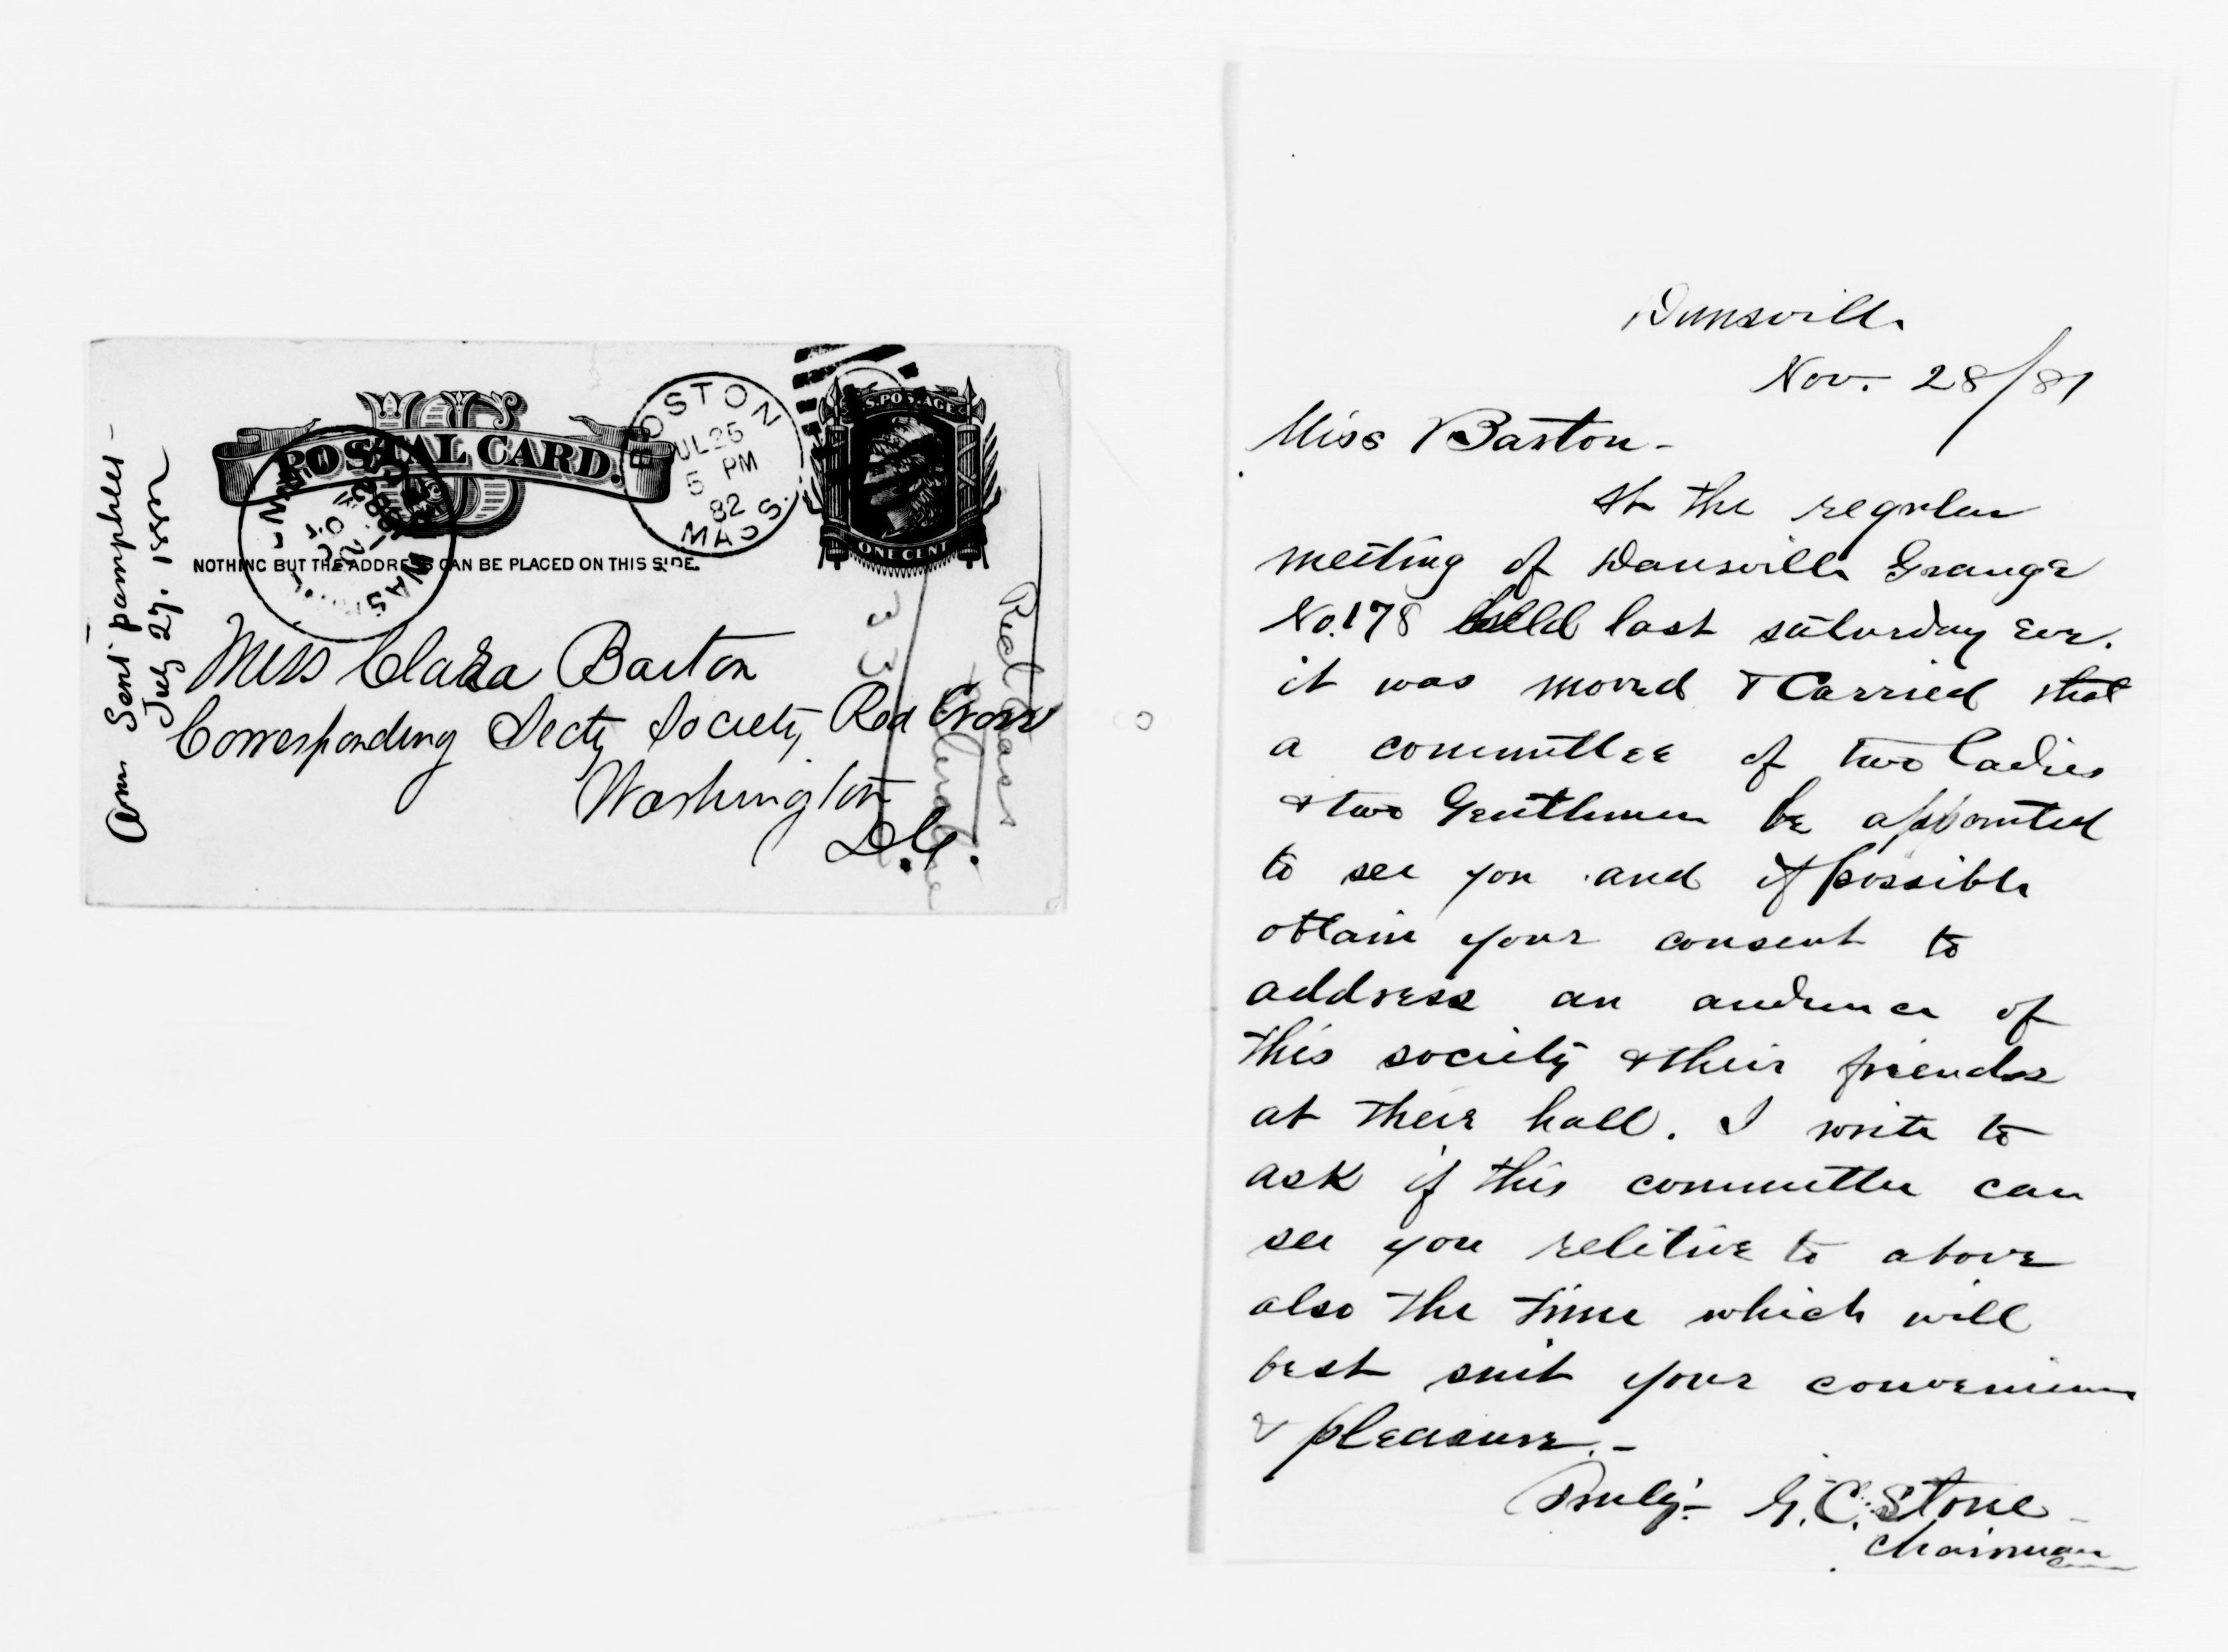 POSTAL CARD.
BOSTON
JUL 25
5 PM
82
MASS.
U.S. POSTAGE
ONE CENT
NOTHING BUT THE ADDRESS CAN BE PLACED ON THIS SIDE.
Miss Clara Barton
Corresponding Secty Society Red Cross
Washington
D.C.
Ans. Sent pamphlet -
July 27. 1882
Red Cross
33
Dansville
Nov. 28/81
Miss Barton -
At the regular
meeting of Dansville Grange
No. 178 held last saturday eve.
it was moved & Carried that
a committee of two Ladies
& two Gentlemen be appointed
to see you and if possible
obtain your consent to
address an audience of
this society & their friends
at their hall. I write to
ask if this committee can
see you relitive to above
also the time which will
best suit your convenience
& pleasure. -
Truly - G. C. Stone -
Chairman